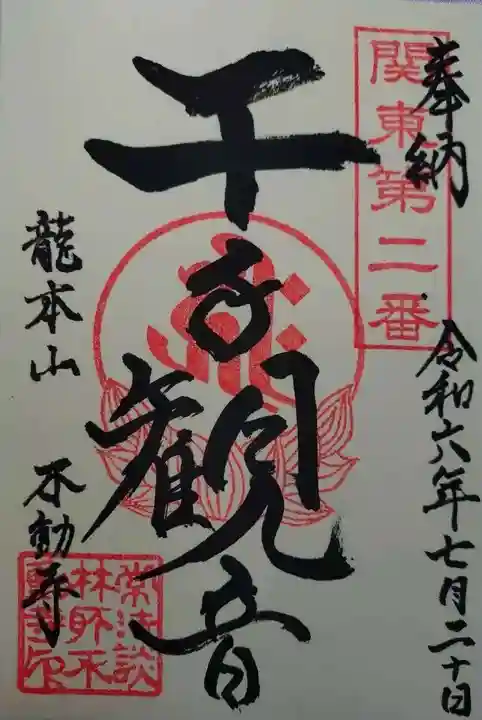 奉納
関東第二番
令和六年七月二十日
千手観音
龍本山 不動寺